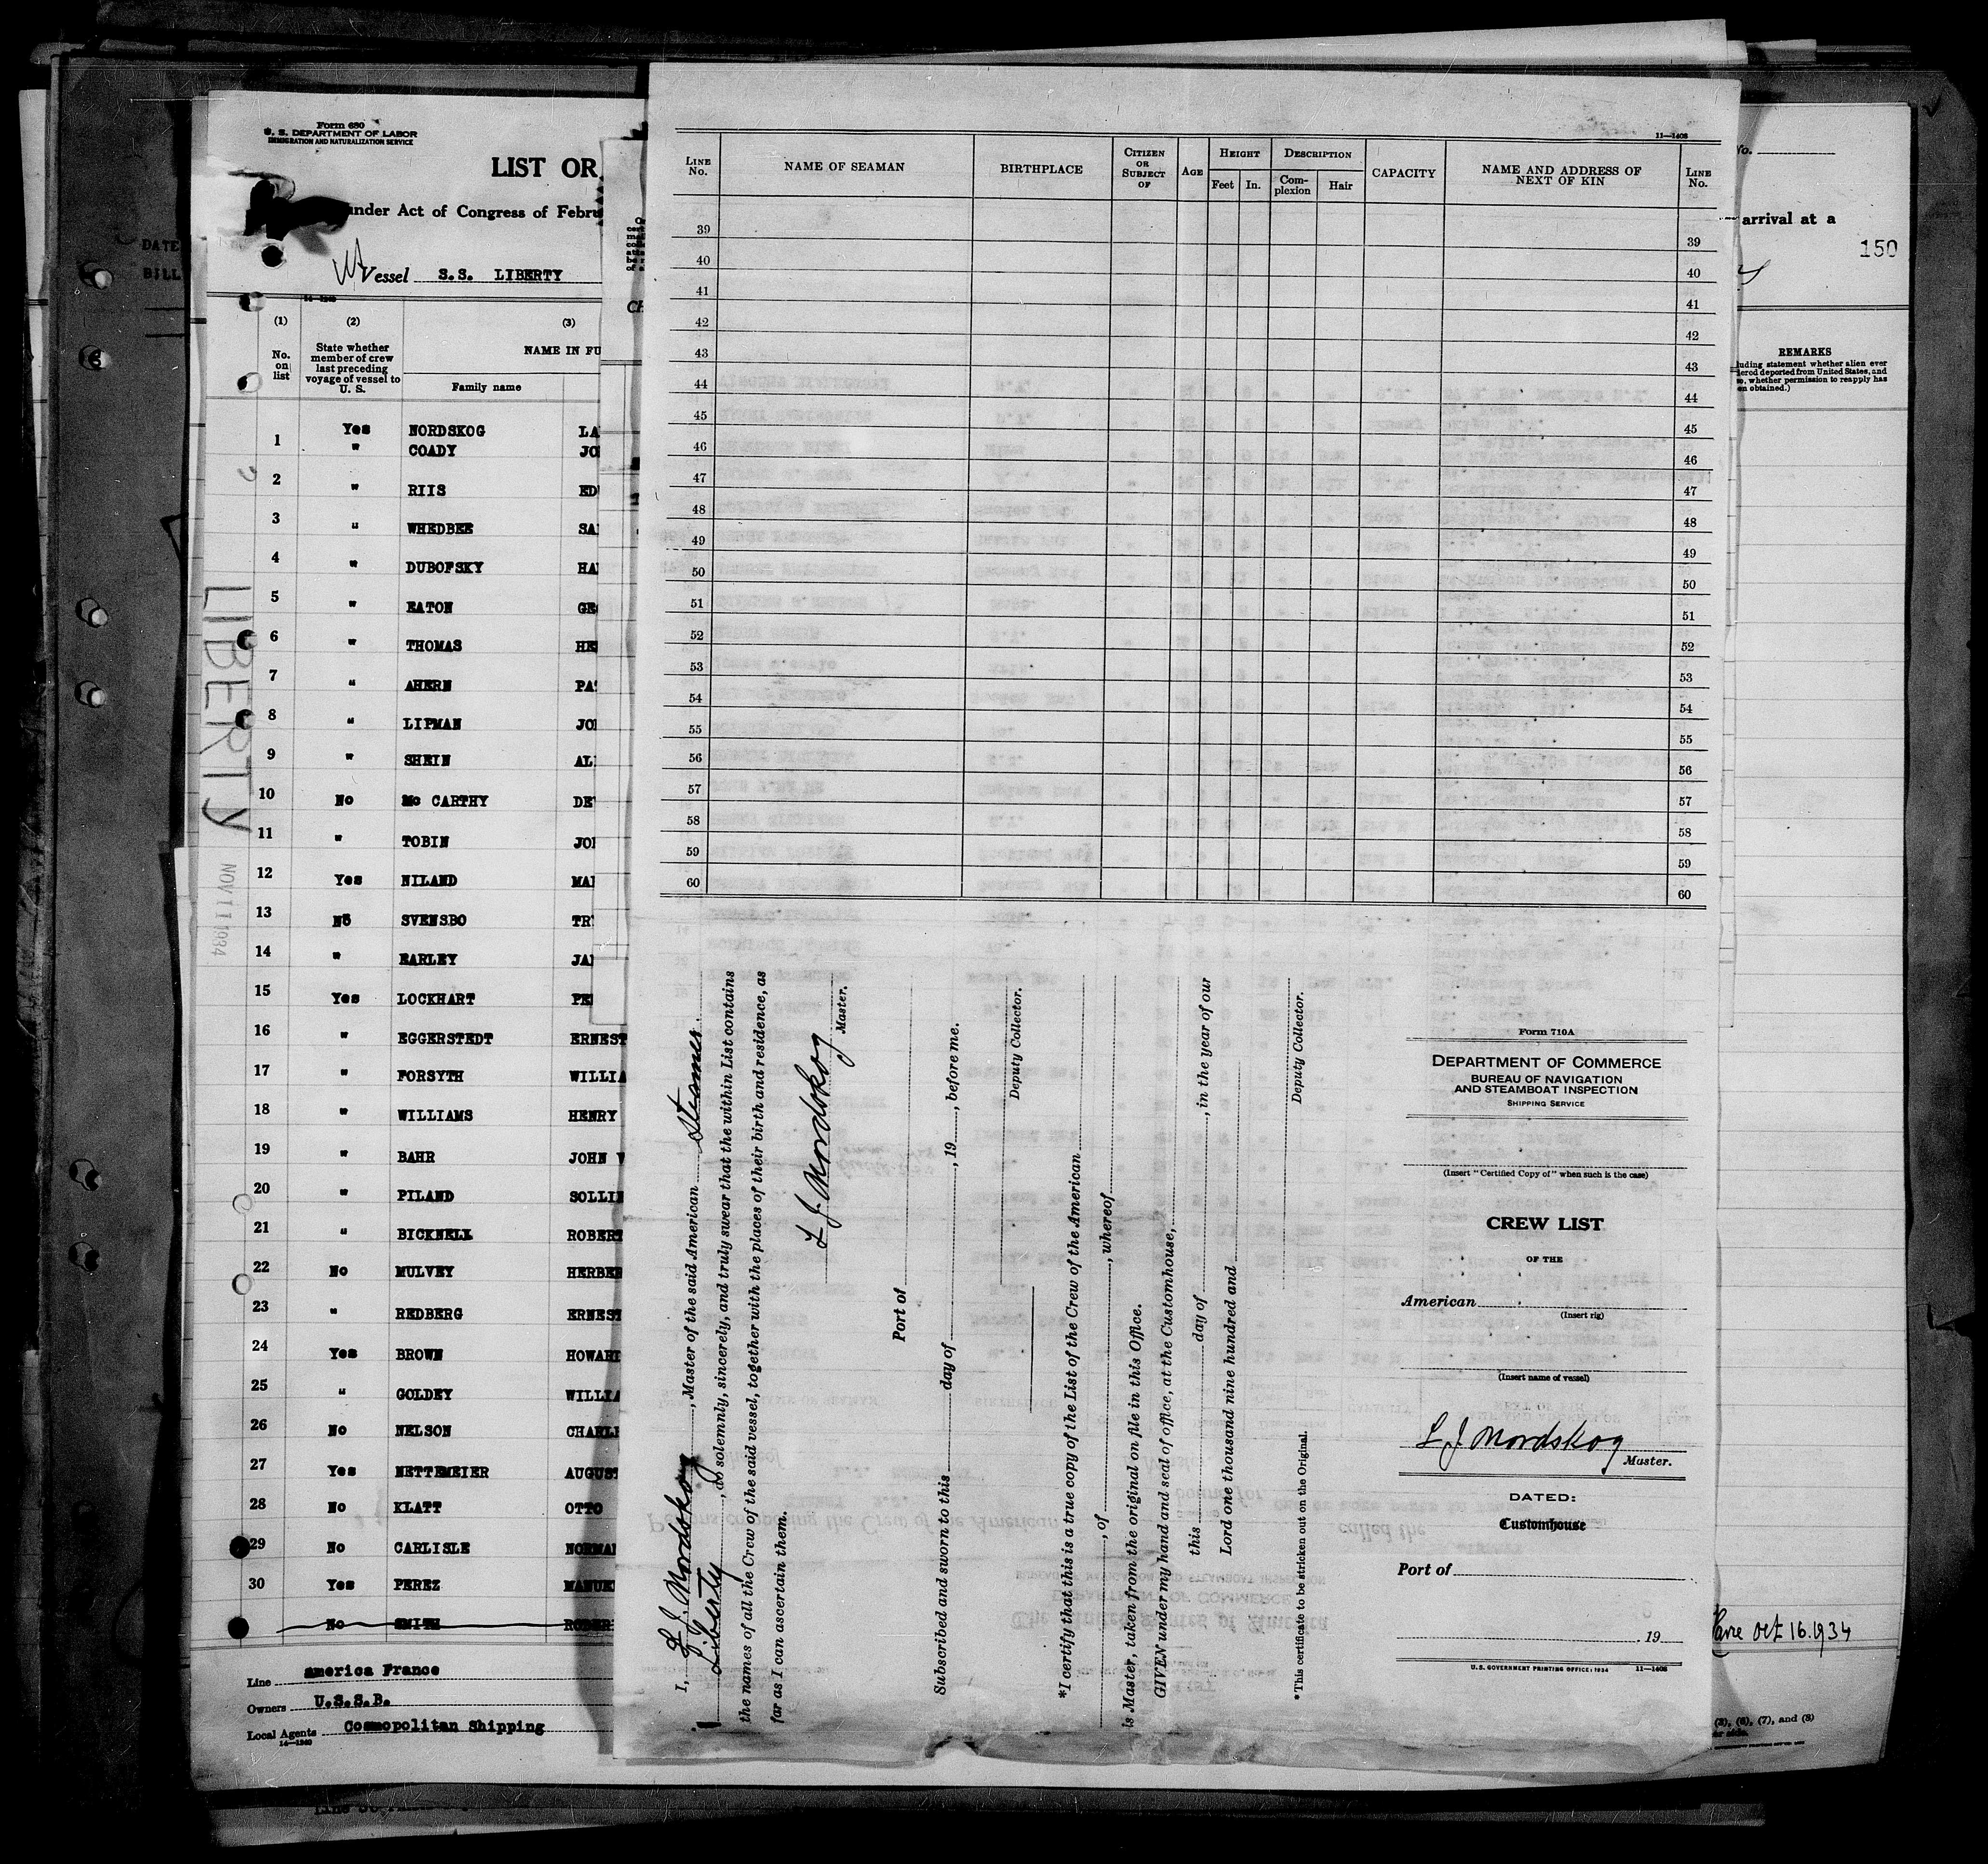 Form 680
U. S. DEPARTMENT OF LABOR
IMMIGRATION AND NATURALIZATION SERVICE
LIST OR
under Act of Congress of Febru
Vessel S.S. LIBERTY
14—1240
(1) (2) (3)
No. on list
State whether member of crew last preceding voyage of vessel to U. S.
NAME IN FU
Family name
Yes NORDSKOG LA
1 " COADY JO
2 " RIIS ED
3 " WHEDBEE SA
4 " DUBOFSKY HA
5 " EATON GE
6 " THOMAS HE
7 " AHERN PA
8 " LIPMAN JO
9 " SHEIN AL
10 No Mc CARTHY DE
11 " TOBIN JO
12 Yes NILAND MA
13 No SVENSBO TR
14 " EARLEY JA
15 Yes LOCKHART PE
16 " EGGERSTEDT ERNEST
17 " FORSYTH WILLIA
18 " WILLIAMS HENRY
19 " BAHR JOHN
20 " PILAND SOLLI
21 " BICKNELL ROBERT
22 No MULVEY HERBE
23 " REDBERG ERNEST
24 Yes BROWN HOWARD
25 " GOLDEY WILLIA
26 No NELSON CHARL
27 Yes NETTEMEIER AUGUST
28 No KLATT OTTO
29 No CARLISLE NORMA
30 Yes PEREZ MANUE
No SMITH ROBER
Line america France
Owners U.S.S.B.
Local Agents Cosmopolitan Shipping
14—1240
LIBERTY
NOV 11 1934
DATE
BILL
11—1408
LINE No. NAME OF SEAMAN BIRTHPLACE CITIZEN OR SUBJECT OF AGE HEIGHT DESCRIPTION CAPACITY NAME AND ADDRESS OF NEXT OF KIN LINE No.
Feet In. Complexion Hair
39 39
40 40
41 41
42 42
43 43
44 44
45 45
46 46
47 47
48 48
49 49
50 50
51 51
52 52
53 53
54 54
55 55
56 56
57 57
58 58
59 59
60 60
I, L. J. Nordskog, Master of the said American Steamer
Liberty, do solemnly, sincerely, and truly swear that the within List contains
the names of all the Crew of the said vessel, together with the places of their birth and residence, as
far as I can ascertain them.
L J. Nordskog
Master.
Port of
Subscribed and sworn to this day of , 19 , before me.
Deputy Collector.
*I certify that this is a true copy of the List of the Crew of the American
, of , whereof
is Master, taken from the original on file in this Office.
GIVEN under my hand and seal of office, at the Customhouse,
this day of , in the year of our
Lord one thousand nine hundred and
Deputy Collector.
*This certificate to be stricken out on the Original.
Form 710A
DEPARTMENT OF COMMERCE
BUREAU OF NAVIGATION
AND STEAMBOAT INSPECTION
SHIPPING SERVICE
(Insert "Certified Copy of" when such is the case)
CREW LIST
OF THE
American
(Insert rig)
(Insert name of vessel)
L J Nordskog
Master.
DATED:
Customhouse
Port of
, 19
U. S. GOVERNMENT PRINTING OFFICE: 1934 11—1408
No.
arrival at a
150
REMARKS
luding statement whether alien ever
ered deported from United States, and
so, whether permission to reapply has
en obtained.)
Oct 16.1934
(5), (6), (7), and (8)